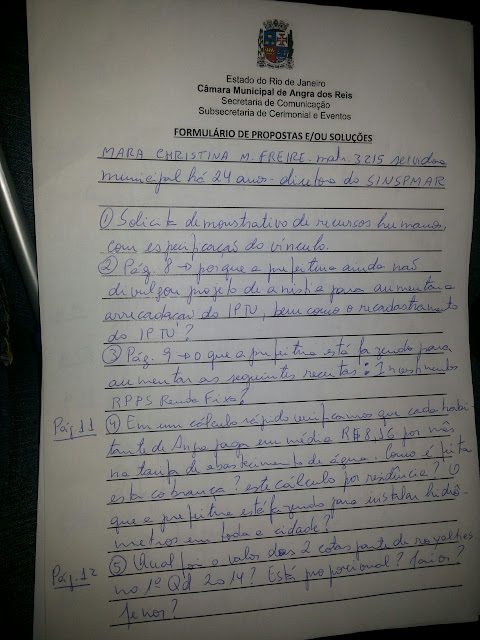 Estado do Rio de Janeiro
Câmara Municipal de Angra dos Reis
Secretaria de Comunicação
Subsecretaria de Cerimonial e Eventos
FORMULÁRIO DE PROPOSTAS E/OU SOLUÇÕES
MARA CHRISTINA M. FREIRE - matr. 3215 servidora
municipal há 24 anos - diretora do SINSPMAR
① Solicita demonstrativo de recursos humanos,
com especificação do vínculo.
② Pág. 8 → porque a prefeitura ainda não
divulgou projeto de anistia para aumentar a
arrecadação do IPTU, bem como o recadastramento
do IPTU?
③ Pág. 9 → o que a prefeitura está fazendo para
aumentar as seguintes receitas: Investimentos
RPPS Renda Fixa?
Pág 11 ④ Em um cálculo rápido verificamos que cada habi
tante de Angra paga em média R$ 8,36 por mês
na tarifa de abastecimento de água. Como é feita
esta cobrança? este cálculo por residência? O
que a prefeitura está fazendo para instalar hidrô-
metros em toda a cidade?
Pág. 12 ⑤ Qual foi o valor das 2 cotas parte de royalties
no 1º Qd 2014? Está proporcional? Maior?
Menor?